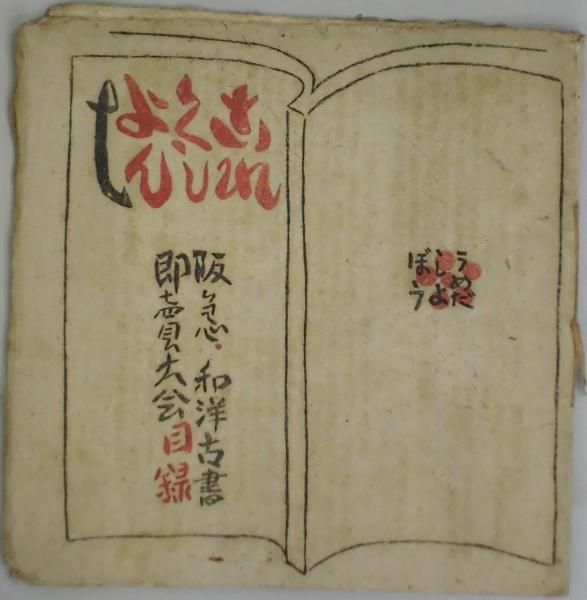 うめだ
こしよ
ぼう
これ
くし
よん
阪急・和洋古書
即賣大会目録